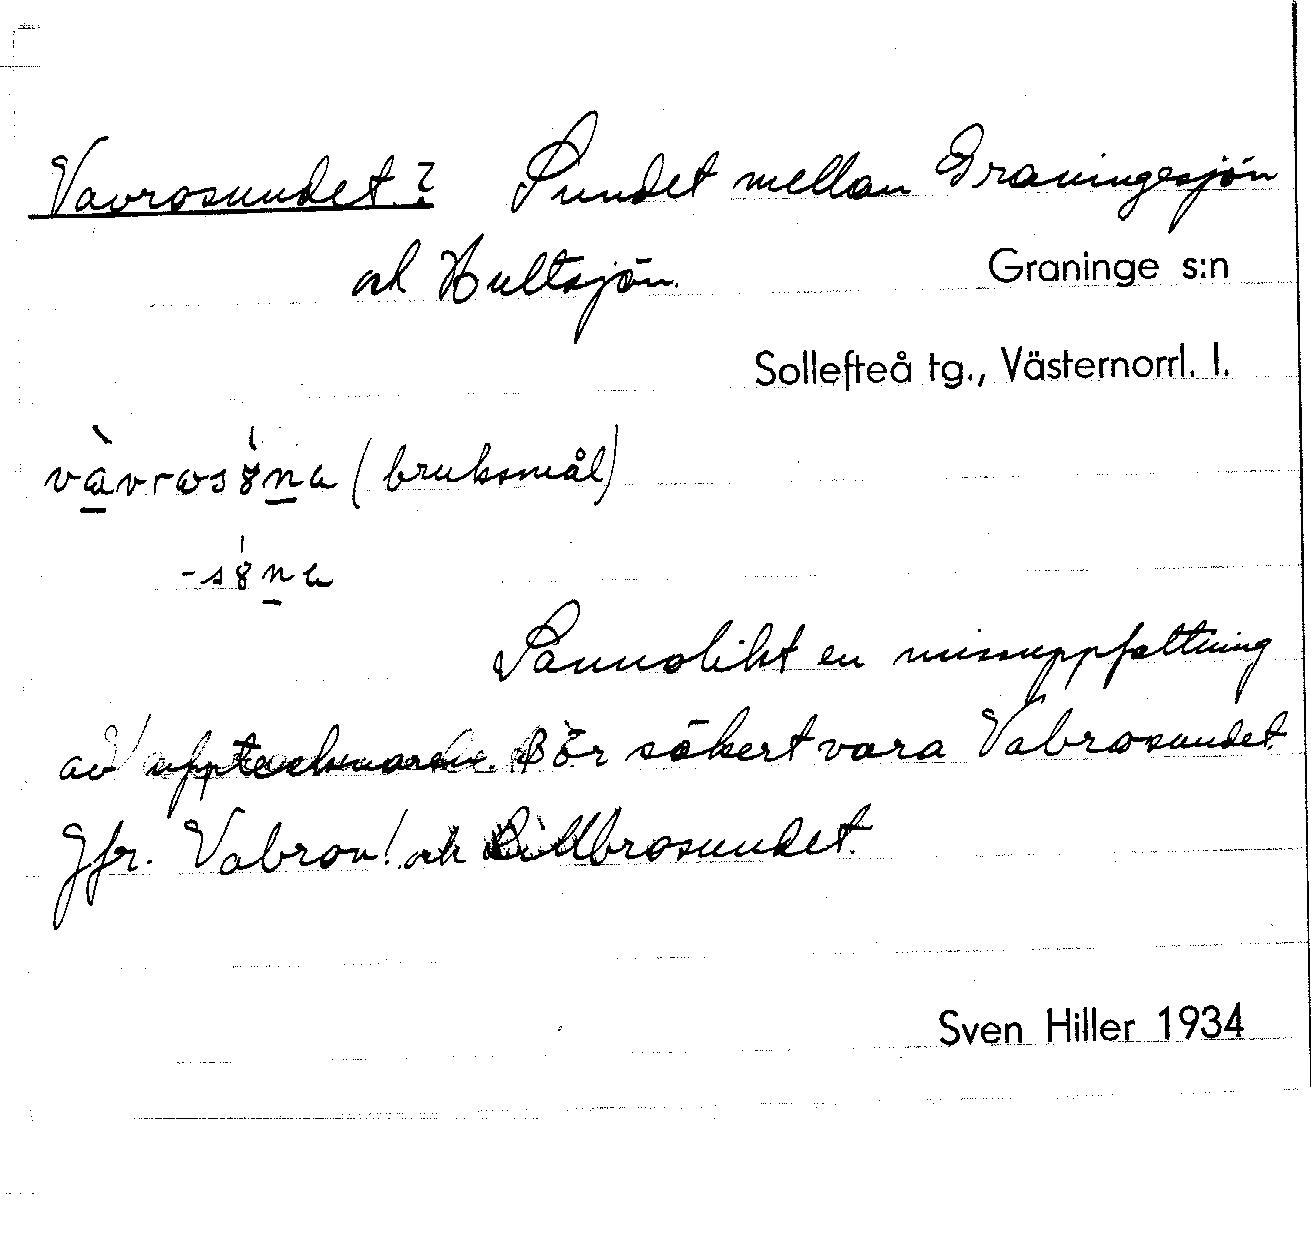 Vavrosundet? Sundet mellan Graningesjön
och Hultsjön.
Graninge s:n
Sollefteå tg., Västernorrl. l.
(bruksmål)
Sannolikt en missuppfattning
av upptecknaren. Bör säkert vara Vabrosundet
Jfr. Vabron! och Lillbrosundet.
Sven Hiller 1934